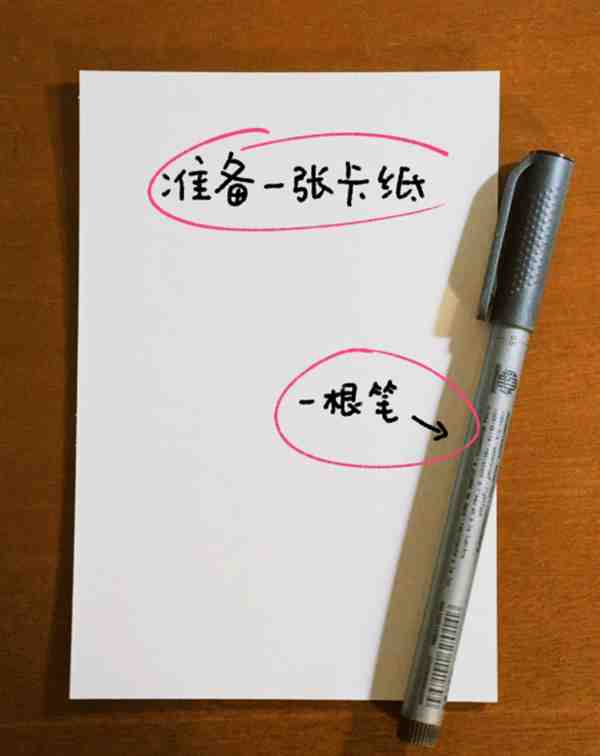 准备一张卡纸
一根笔